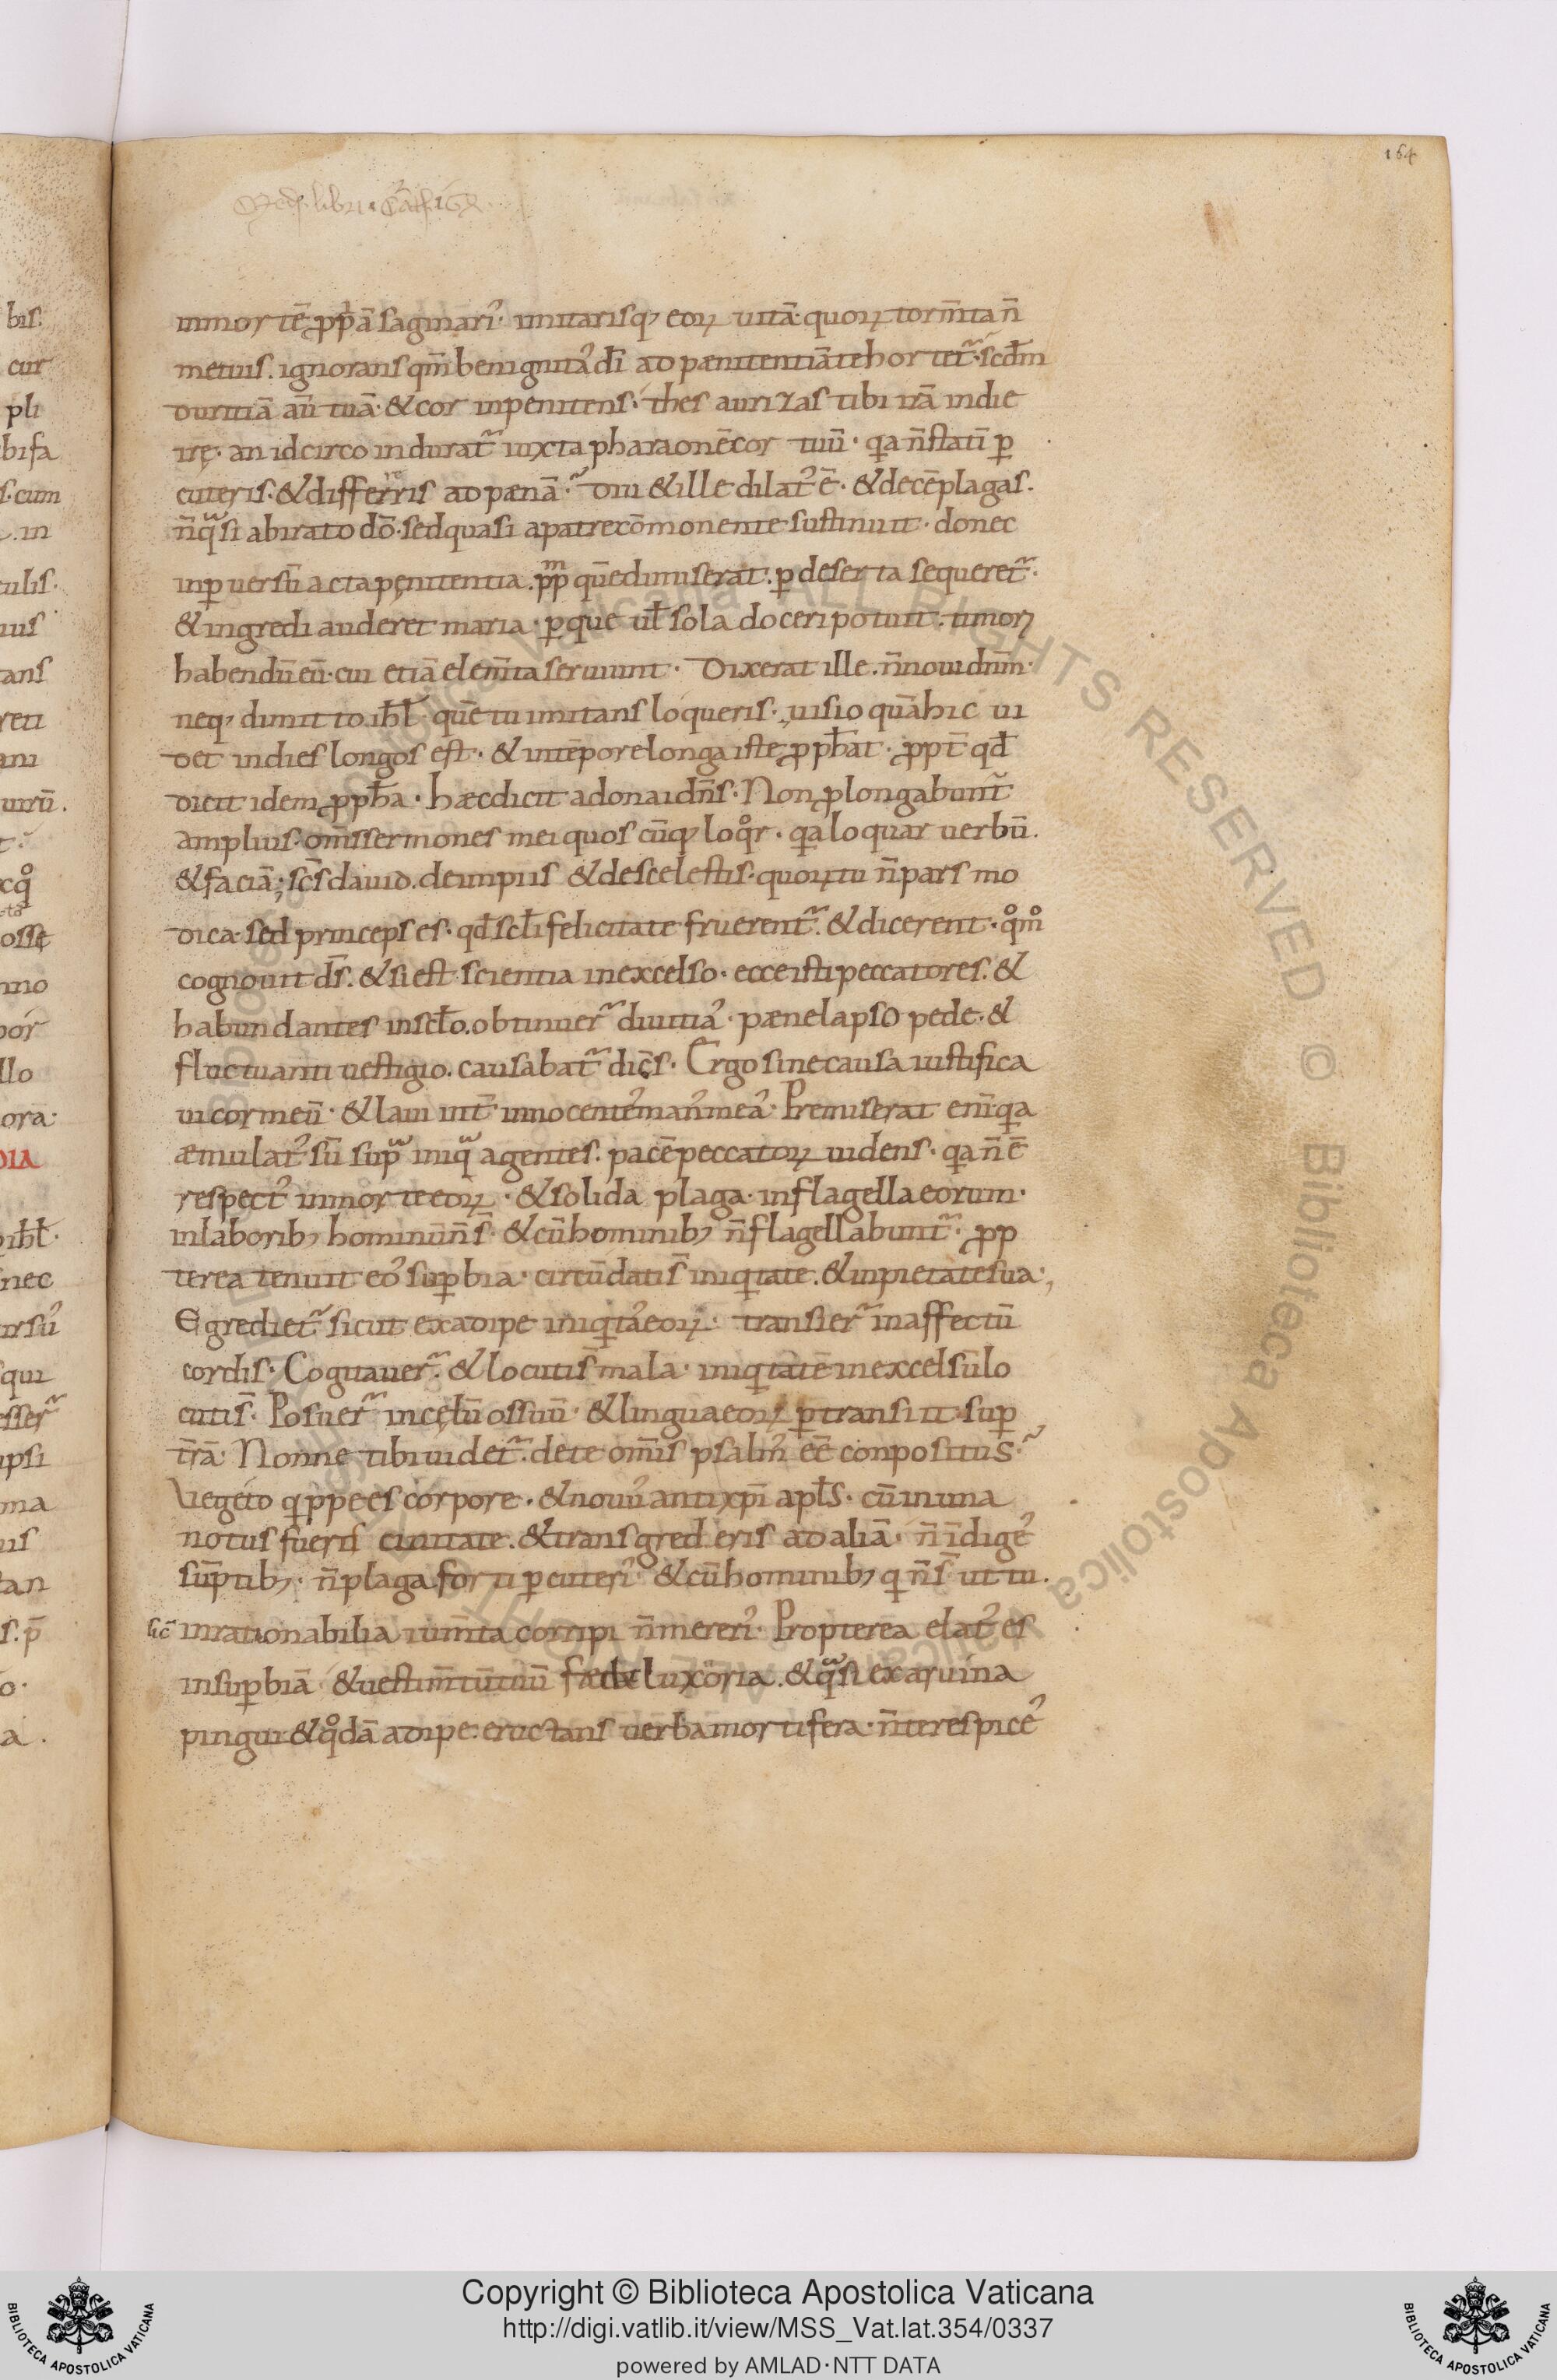 164
inmortē ꝓpꝑ̄ā saginari᾽· imitarisq; eoꝝ uitā· quoꝝ torm̄ta n̄
metuis. ignorans qm̄ benignita᾽ dī ad pænitentiā te hortet᷑· scd̄m
duritiā aū tuā· & cor inpenitens· thesaurizas tibi irā in die
irę· an idcirco indurat᷑ iuxta pharaonē cor tuū· qa n̄ statī ꝑ
cuteris· & differris ad pænā· diu & ille dilat᾽ ē· & decē plagas.
n̄ qͣsi ab irato dō· sed quasi a patre cōmonente sustinuit· donec
inꝑuersū acta pęnitentia. pp̄m quē dimiserat. ꝑ deserta sequeret᷑·
& ingredi auderet maria· ꝑ que ul̄ sola doceri potuit. timoꝝ
habendū eū· cui etiā elem̄ta seruiunt· Dixerat ille. n̄ noui dn̄m·
neq; dimitto ihl̄· quē tu imitans loqueris· uisio quā hic ui
det in dies longos est· & in tēpore longa iste ꝓph̄at· ꝓpt̄ qd̄
dicit idem ꝓph̄a· hæc dicit adonai dn̄s· Non ꝓlongabunt᷑
amplius· om̄s sermones mei quoscūq; loqͦr· qa loquar uerbū.
& faciā; scs̄ dauid. de impiis & de scelestis· quoꝝ tu n̄ pars mo
dica· sed princeps es· qd̄ scl̄i felicitate fruerent᷑· & dicerent· qͦmͦ
cognouit ds̄. & si est scientia in excelso· ecce isti peccatores. &
habundantes in scl̄o. obtinuer᷑ diuitia᾽· pæne lapso pede· &
fluctuanti uestigio. causabat᷑ dicēs· Ergo sine causa iustifica
ui cor meū· & laui int̄ innocente᾽ man᾽ mea᾽· Premiserat enī qa
æmulat᾽ sū suꝑ iniqͣ agentes. pacē peccatoꝝ uidens· qa n̄ ē
respect᾽ in morte eoꝝ· & solida plaga· in flagella eorum·
in laborib; hominū n̄ s̄· & cū hominib; n̄ flagellabunt᷑· ꝓp
terea tenuit eo᾽ suꝑbia· circūdati s̄ iniqtate. & inpietate sua·,
Egrediet᷑ sicut ex adipe iniqta᾽ eoꝝ· transier᷑ in affectū
cordis· Cogitauer᷑· & locuti s̄ mala· iniqtatē in excelsū lo
cuti s̄· Posuer᷑ in cęlū os suū· & lingua eoꝝ ꝑtransiit suꝑ
tr̄ā· Nonne tibi uidet᷑· de te om̄is psalm᾽ eē conpositus·
Vegeto qppe es corpore· & nouu᾽ antixp̄i apl̄s· cū in una
notus fueris ciuitate. & transgrederis ad aliā· n̄ īdige᾽
sūptib;· n̄ plaga forti ꝑcuteri᾽· & cū hominib; q n̄ s̄ ut tu.
sic̄ inrationabilia ium̄ta corripi n̄ mereri᾽· Propterea elat᾽ es
in suꝑbiā· & uestim̄tū tuū fæda luxoria. & qͣsi ex aruina
pingui & qͦdā adipe· eructans uerba mortifera· n̄ te respice᾽
Copyright © Biblioteca Apostolica Vaticana
http://digi.vatlib.it/view/MSS_Vat.lat.354/0337
powered by AMLAD·NTT DATA